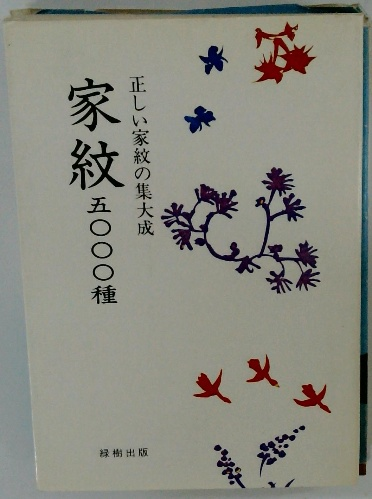 正しい家紋の集大成
家紋五〇〇〇種
緑樹出版